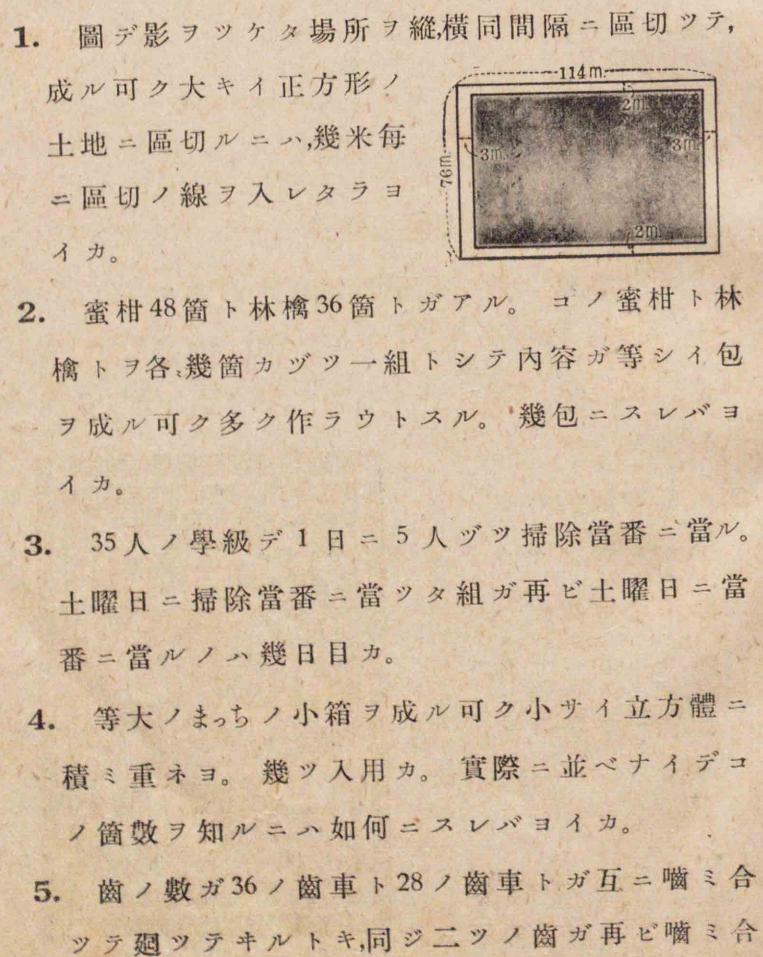 1. 圖デ影ヲツケタ場所ヲ縱,橫同間隔ニ區切ツテ,
成ル可ク大キイ正方形ノ
土地ニ區切ルニハ,幾米每
ニ區切ノ線ヲ入レタラヨ
イカ。
114m.
2m.
76m.
3m.
3m.
2m.
2. 蜜柑48箇ト林檎36箇トガアル。 コノ蜜柑ト林
檎トヲ各、幾箇カヅツ一組トシテ內容ガ等シイ包
ヲ成ル可ク多ク作ラウトスル。 幾包ニスレバヨ
イカ。
3. 35人ノ學級デ1日ニ5人ヅツ掃除當番ニ當ル。
土曜日ニ掃除當番ニ當ツタ組ガ再ビ土曜日ニ當
番ニ當ルノハ幾日目カ。
4. 等大ノまっちノ小箱ヲ成ル可ク小サイ立方體ニ
積ミ重ネヨ。 幾ツ入用カ。 實際ニ並ベナイデコ
ノ箇數ヲ知ルニハ如何ニスレバヨイカ。
5. 齒ノ數ガ36ノ齒車ト28ノ齒車トガ互ニ嚙ミ合
ツテ廻ツテヰルトキ,同ジ二ツノ齒ガ再ビ嚙ミ合